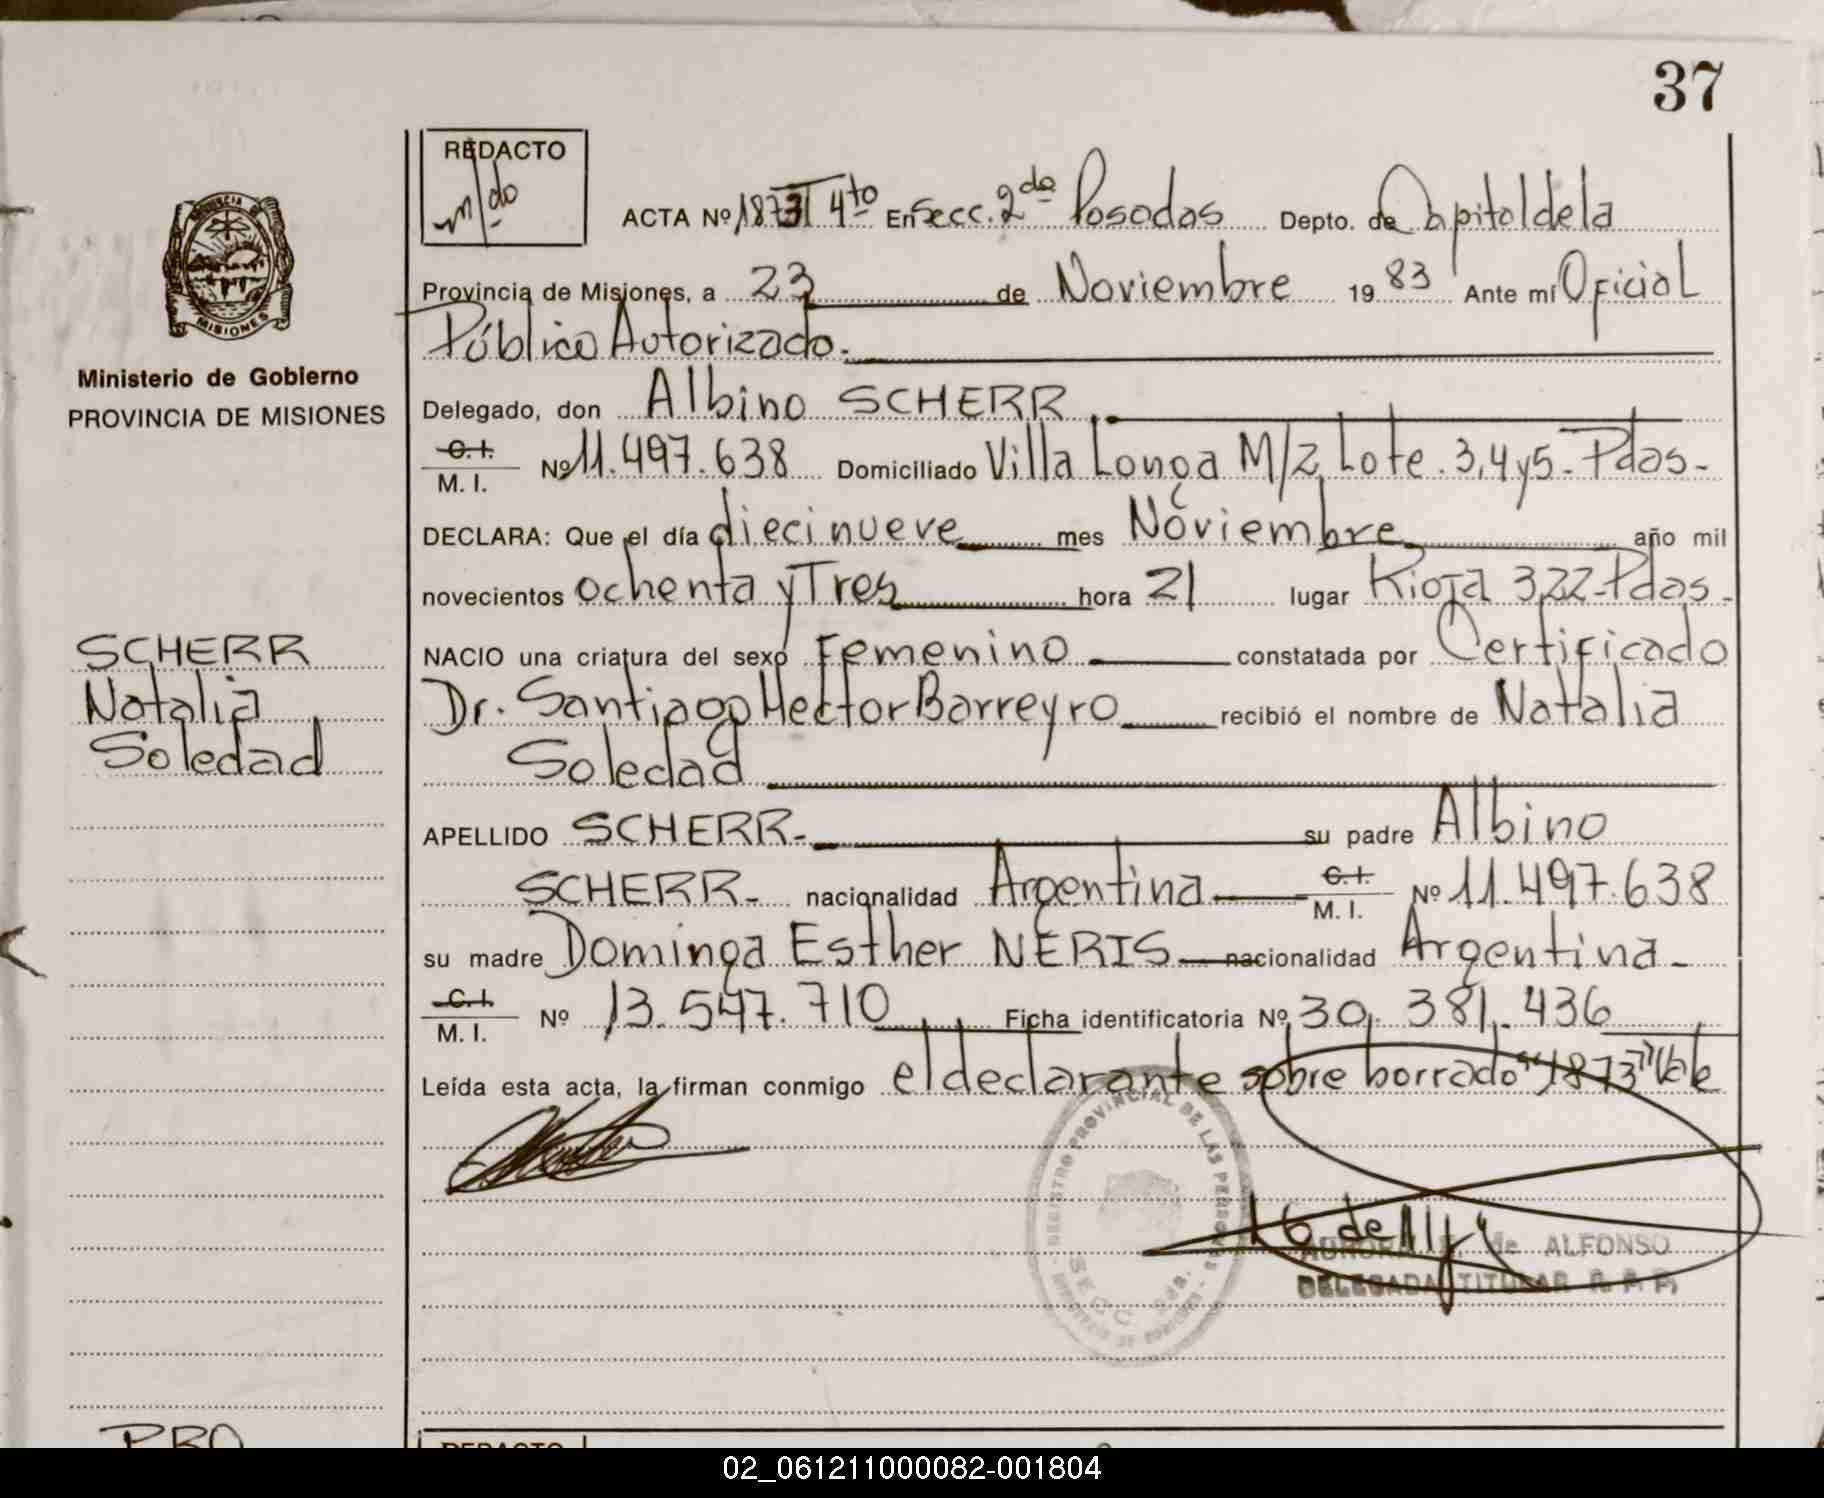 37
REDACTO
m/do
ACTA Nº 1873 T 4to En Secc. 2da Posadas Depto. de Capital de la
Provincia de Misiones, a 23 de Noviembre 19 83 Ante mí Oficial
Público Autorizado.
Delegado, don Albino SCHERR
C. I.
M. I. Nº 11.497.638 Domiciliado Villa Longa M/z Lote. 3,4y5- Pdas-
DECLARA: Que el día diecinueve mes Noviembre año mil
novecientos ochenta y Tres hora 21 lugar Rioja 322-Pdas-
NACIO una criatura del sexo Femenino constatada por Certificado
Dr. Santiago Hector Barreyro recibió el nombre de Natalia
Soledad
APELLIDO SCHERR- su padre Albino
SCHERR- nacionalidad Argentina C. I. M. I. Nº 11.497.638
su madre Dominga Esther NERIS nacionalidad Argentina-
C. I.
M. I. Nº 13.547.710 Ficha identificatoria Nº 30. 381. 436
Leída esta acta, la firman conmigo el declarante sobre borrado "1873" Vale
PROVINCIA DE
MISIONES
Ministerio de Gobierno
PROVINCIA DE MISIONES
SCHERR
Natalia
Soledad
REGISTRO PROVINCIAL DE LAS PERSONAS
SECC. 2da.
de ALFONSO
DELEGADA TITULAR R. P. P.
PRO
REDACTO
02_061211000082-001804